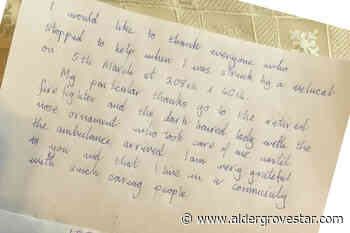 I would like to thank everyone who
stopped to help when I was struck by a vehicle
on 5th March at 208th & 40th.
My particular thanks go to the retired
fire fighter and the dark haired lady with the
nose ornament who took care of me until
the ambulance arrived. I am very grateful
to you and that I live in a community
with such caring people
© www.aldergrovestar.com